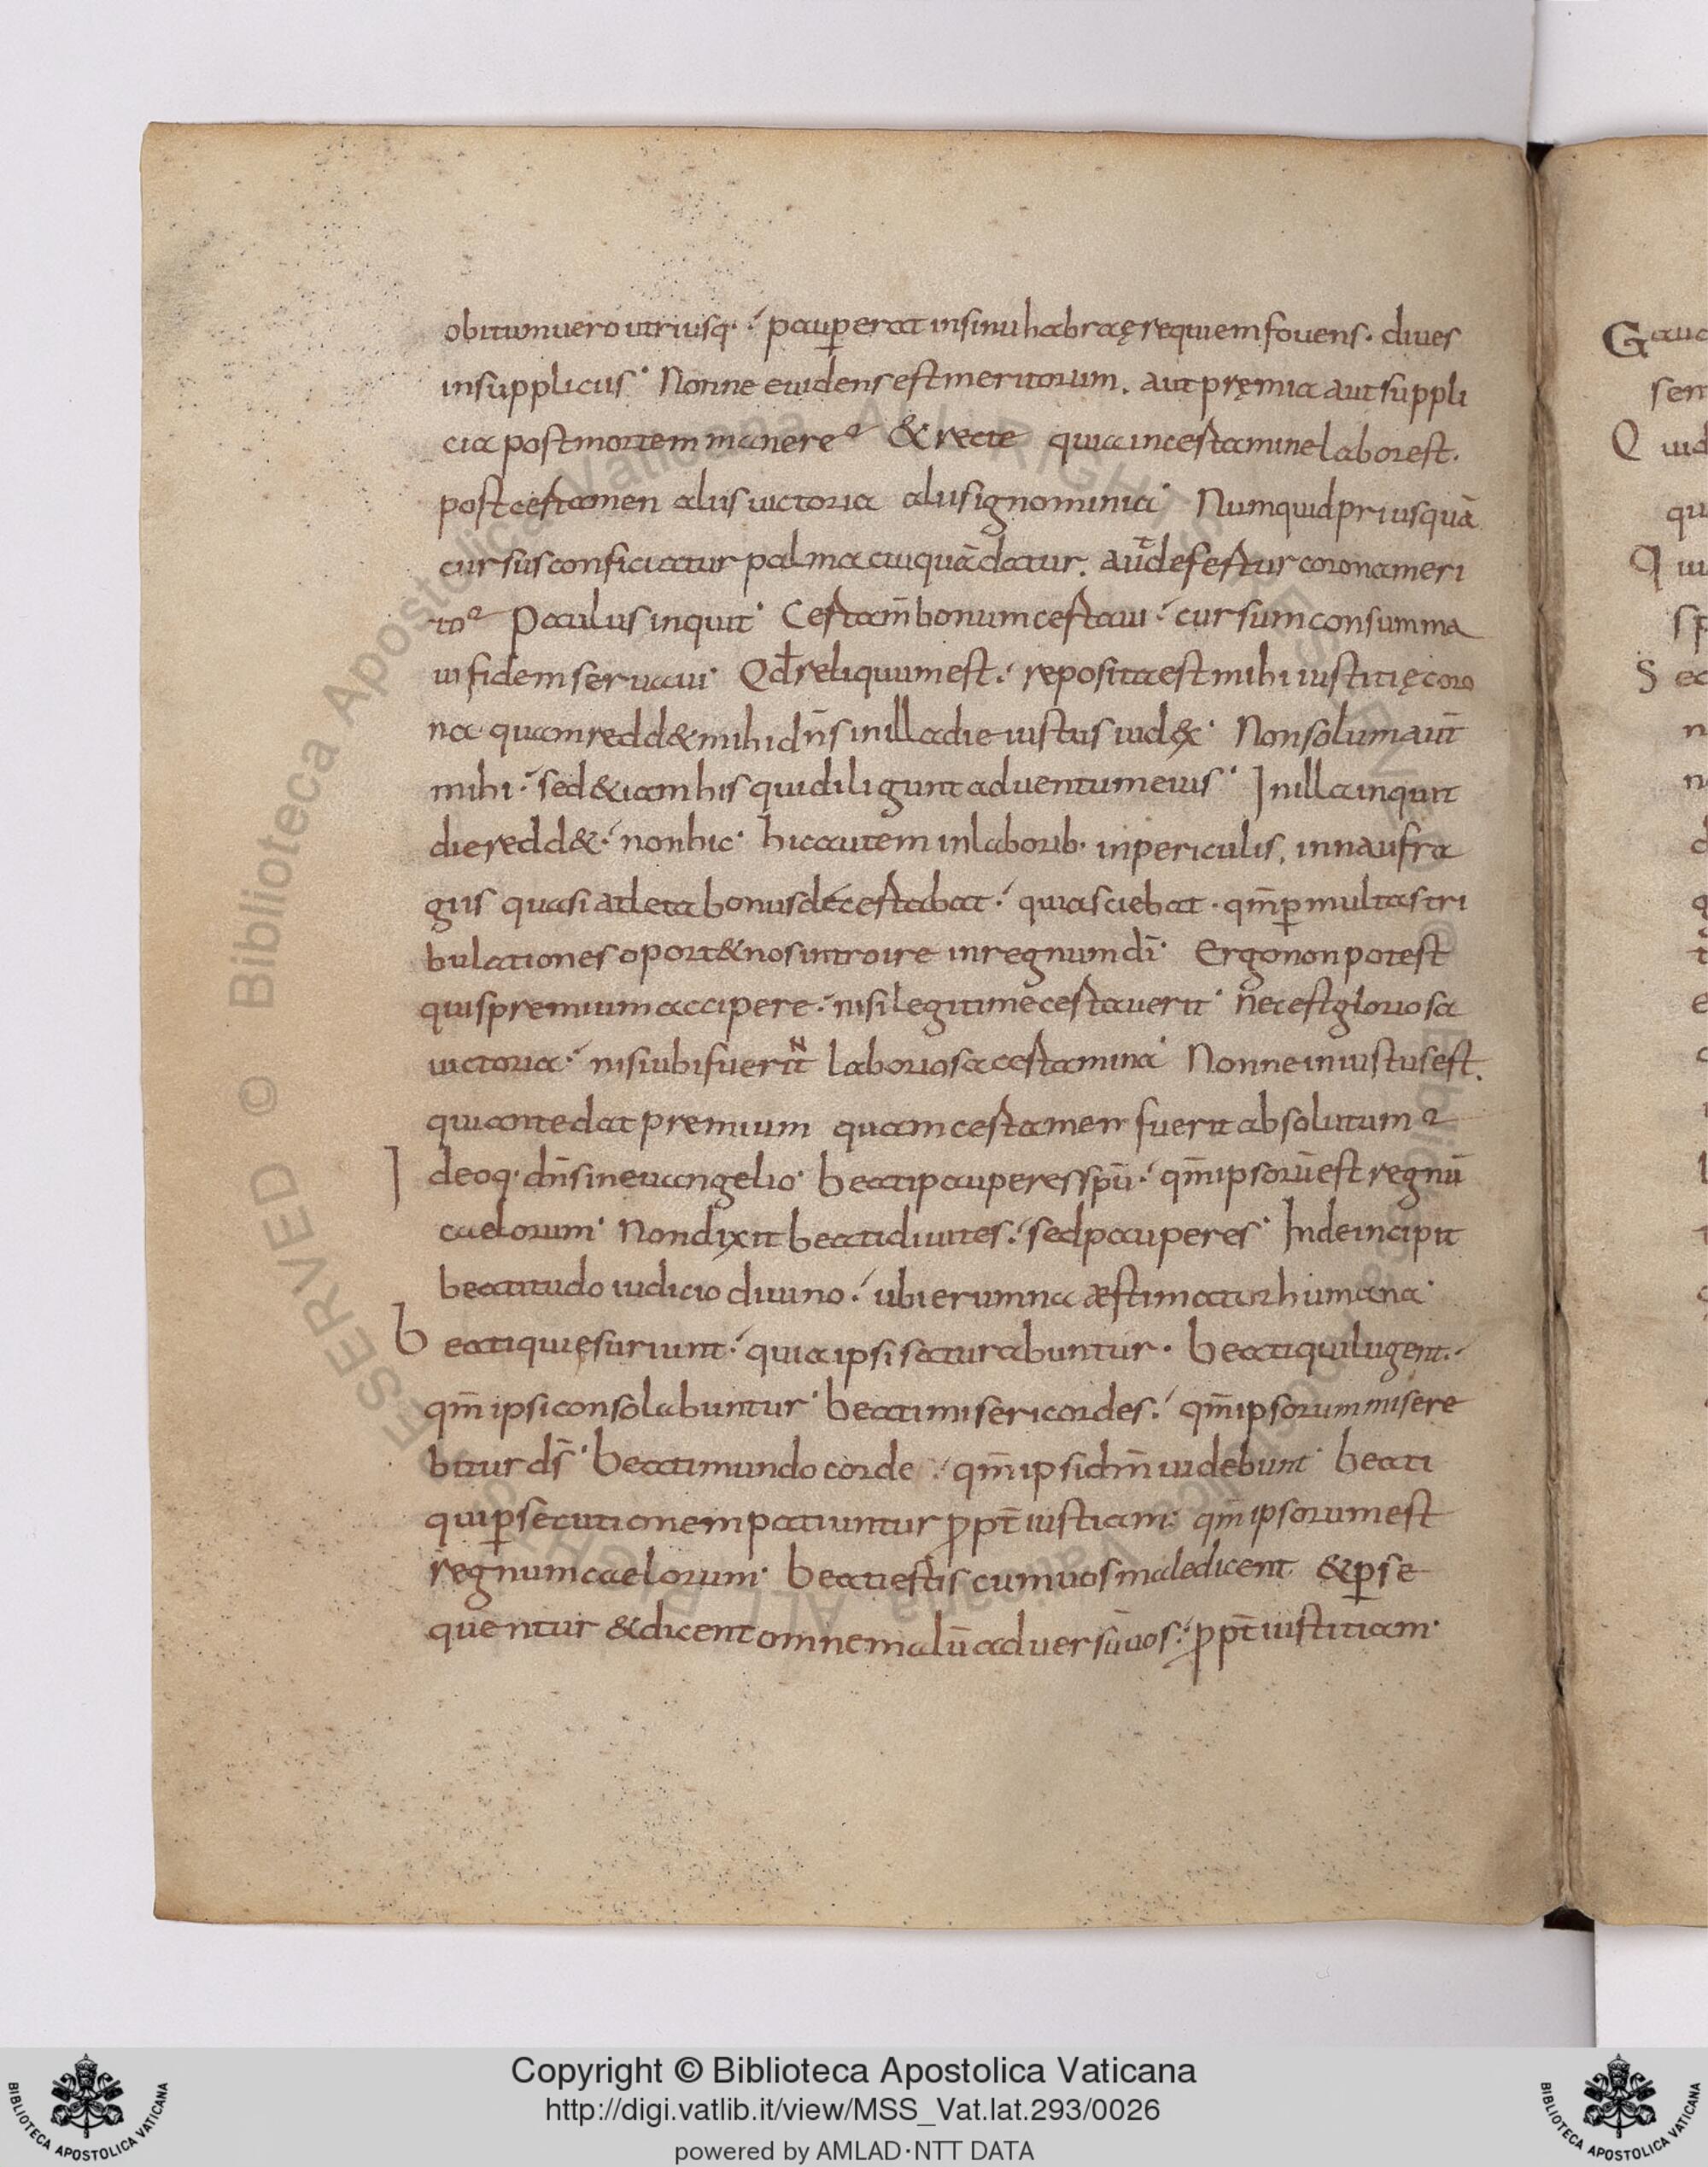 obitum uero utriusq·; pauper erat in sinu habraę requiem fouens. diues
in suppliciis· Nonne euidens est meritorum. aut pręmia aut suppli
cia post mortem manere? & recte quia in certamine labor est.
post certamen aliis uictoria aliis ignominia· Numquid priusquā
cursus conficiatur palma cuiquā datur. aut̄ defertur corona meri
to? Paulus inquit· Certam̄ bonum certaui; cursum consumma
ui fidem seruaui· Qđ reliquum est; reposita est mihi iustitię coro
na quam redd& mihi dn̄s in illa die iustus iud&x· Non solum aut̄
mihi; sed &iam his qui diligunt aduentum eius· In illa inquit
die redd&; non hic· hic autem in laborib· in periculis, in naufra
giis quasi atleta bonus decertabat; quia sciebat. qm̄ ꝑ multas tri
bulationes oport& nos introire in regnum dī· Ergo non potest
quis premium accipere; nisi legitime certauerit· nec est gloriosa
uictoria; nisi ubi fuerint laboriosa certamina· Nonne iniustus est.
qui ante dat premium quam certamen fuerit absolutum?
Ideoq· dn̄s in euangelio· beati pauperes spū; qm̄ ipsorū est regnū
caelorum· Non dixit beati diuites; sed pauperes· Inde incipit
beatitudo iudicio diuino; ubi erumna æstimatur humana·
beati qui esuriunt; quia ipsi saturabuntur. beati qui lugent;
qm̄ ipsi consolabuntur· beati misericordes; qm̄ ipsorum misere
bitur ds̄· beati mundo corde; qm̄ ipsi dm̄ uidebunt· beati
qui ꝑsecutionem patiuntur ꝓpt̄ iustiam; qm̄ ipsorum est
regnum caelorum· beati estis cum uos maledicent & ꝑse
quentur & dicent omne malū aduersū uos; ꝓpt̄ iustitiam·
Gaud
sem
Quid
qu
Copyright © Biblioteca Apostolica Vaticana
http://digi.vatlib.it/view/MSS_Vat.lat.293/0026
powered by AMLAD·NTT DATA
BIBLIOTECA APOSTOLICA VATICANA
BIBLIOTECA APOSTOLICA VATICANA